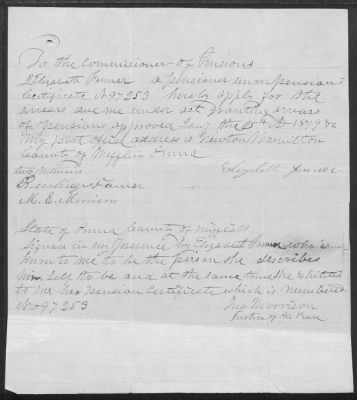 To the Commissioner of Pensions
I Elizabeth Farmer a pensioner under pension
Certificate No 97253 hereby apply for the
arrears due me under act granting arrears
of pensions approved Jany the 25th AD 1879 &c
My post office address is Newton Hamilton
County of Mifflin Penna
Elizabeth Farmer
two Witness
Farmer
M. E. Morrison
State of Penna County of Mifflin
Signed in my presence by Elizabeth Farmer who is
known to me to be the person she describes
her self to be and at the same time she exhibited
to me her pension certificate which is numbered
No 97253
Morrison
Justice of the Peace